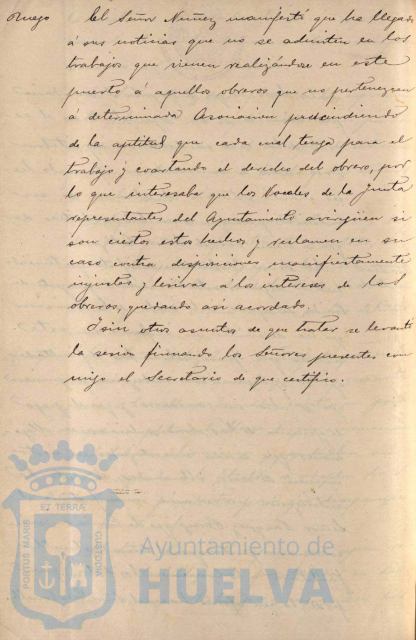 Ruego
El Señor Nuñez manifestó que ha llegado
á sus noticias que no se admiten en los
trabajos que vienen realizándose en este
puerto á aquellos obreros que no pertenezcan
á determinada Asociacion prescindiendo
de la aptitud que cada cual tenga para el
trabajo y coartando el derecho del obrero, por
lo que interesaba que los Vocales de la Junta
representantes del Ayuntamiento averigüen si
son ciertos estos hechos y reclamen en su
caso contra disposiciones manifiestamente
injustas y lesivas á los intereses de los
obreros, quedando asi acordado.
Y sin otros asuntos de que tratar se levantó
la sesion firmando los Señores presentes con
migo el Secretario de que certifico.
PORTUS MARIS ET TERRÆ CUSTODIA
Ayuntamiento de
HUELVA